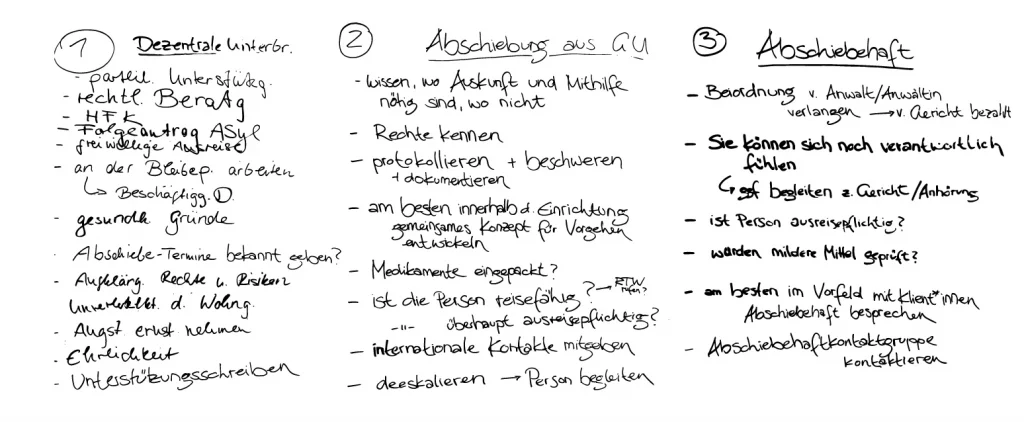 1 Dezentrale Unterbr.
- parteil. Unterstützg.
- rechtl. Beratg
- HFK
- Folgeantrag ASyl
- freiwillige Ausreise
- an der Bleibep. arbeiten
↳ Beschäftigg. D.
- gesundh. Gründe
- Abschiebe-Termine bekannt geben?
- Aufklärg. Rechte u. Risiken
Unverletzlkt. d. Wohng.
- Angst ernst nehmen
- Ehrlichkeit
- Unterstützungsschreiben
2 Abschiebung aus GU
- wissen, wo Auskunft und Mithilfe
nötig sind, wo nicht
- Rechte kennen
- protokollieren + beschweren
+ dokumentieren
- am besten innerhalb d. Einrichtung
gemeinsames Konzept für Vorgehen
entwickeln
- Medikamente eingepackt?
- ist die Person reisefähig? → RTW rufen?
-"- überhaupt ausreisepflichtig?
- internationale Kontakte mitgeben
- deeskalieren → Person begleiten
3 Abschiebehaft
- Beiordnung v. Anwalt/Anwältin
verlangen → v. Gericht bezahlt
- Sie können sich noch verantwortlich
fühlen
↳ ggf begleiten z. Gericht/Anhörung
- ist Person ausreisepflichtig?
- wurden mildere Mittel geprüft?
- am besten im Vorfeld mit Klient*innen
Abschiebehaft besprechen
- Abschiebehaftkontaktgruppe
kontaktieren